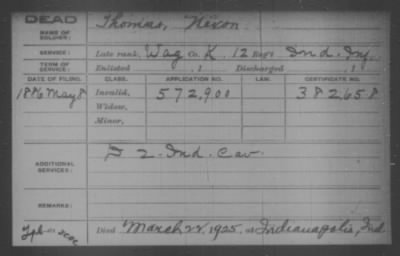 DEAD
NAME OF SOLDIER: Thomas, Nixon
SERVICE: Late rank, Wag Co. K, 12 Reg't Ind. Inf.
TERM OF SERVICE: Enlisted , 1 Discharged , 1
DATE OF FILING. CLASS. APPLICATION NO. LAW. CERTIFICATE NO.
1886 May 8 Invalid, 572,900 382658
Widow,
Minor,
ADDITIONAL SERVICES: D 2 Ind Cav
REMARKS:
Died March 22, 1925, at Indianapolis, Ind.